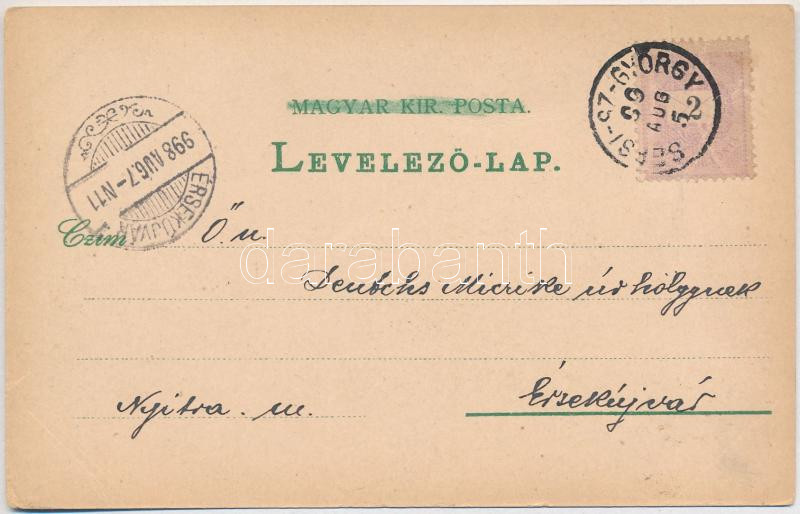 MAGYAR KIR. POSTA.
LEVELEZŐ-LAP.
SEPSI-SZ-GYÖRGY
99
AUG
5
2
998 AUG. 7-N11
ÉRSEKUJVÁR
Czim
Ő n.
Deutschs Micrike úrhölgynek
Érsekújvár
Nyitra. m.
darabanth